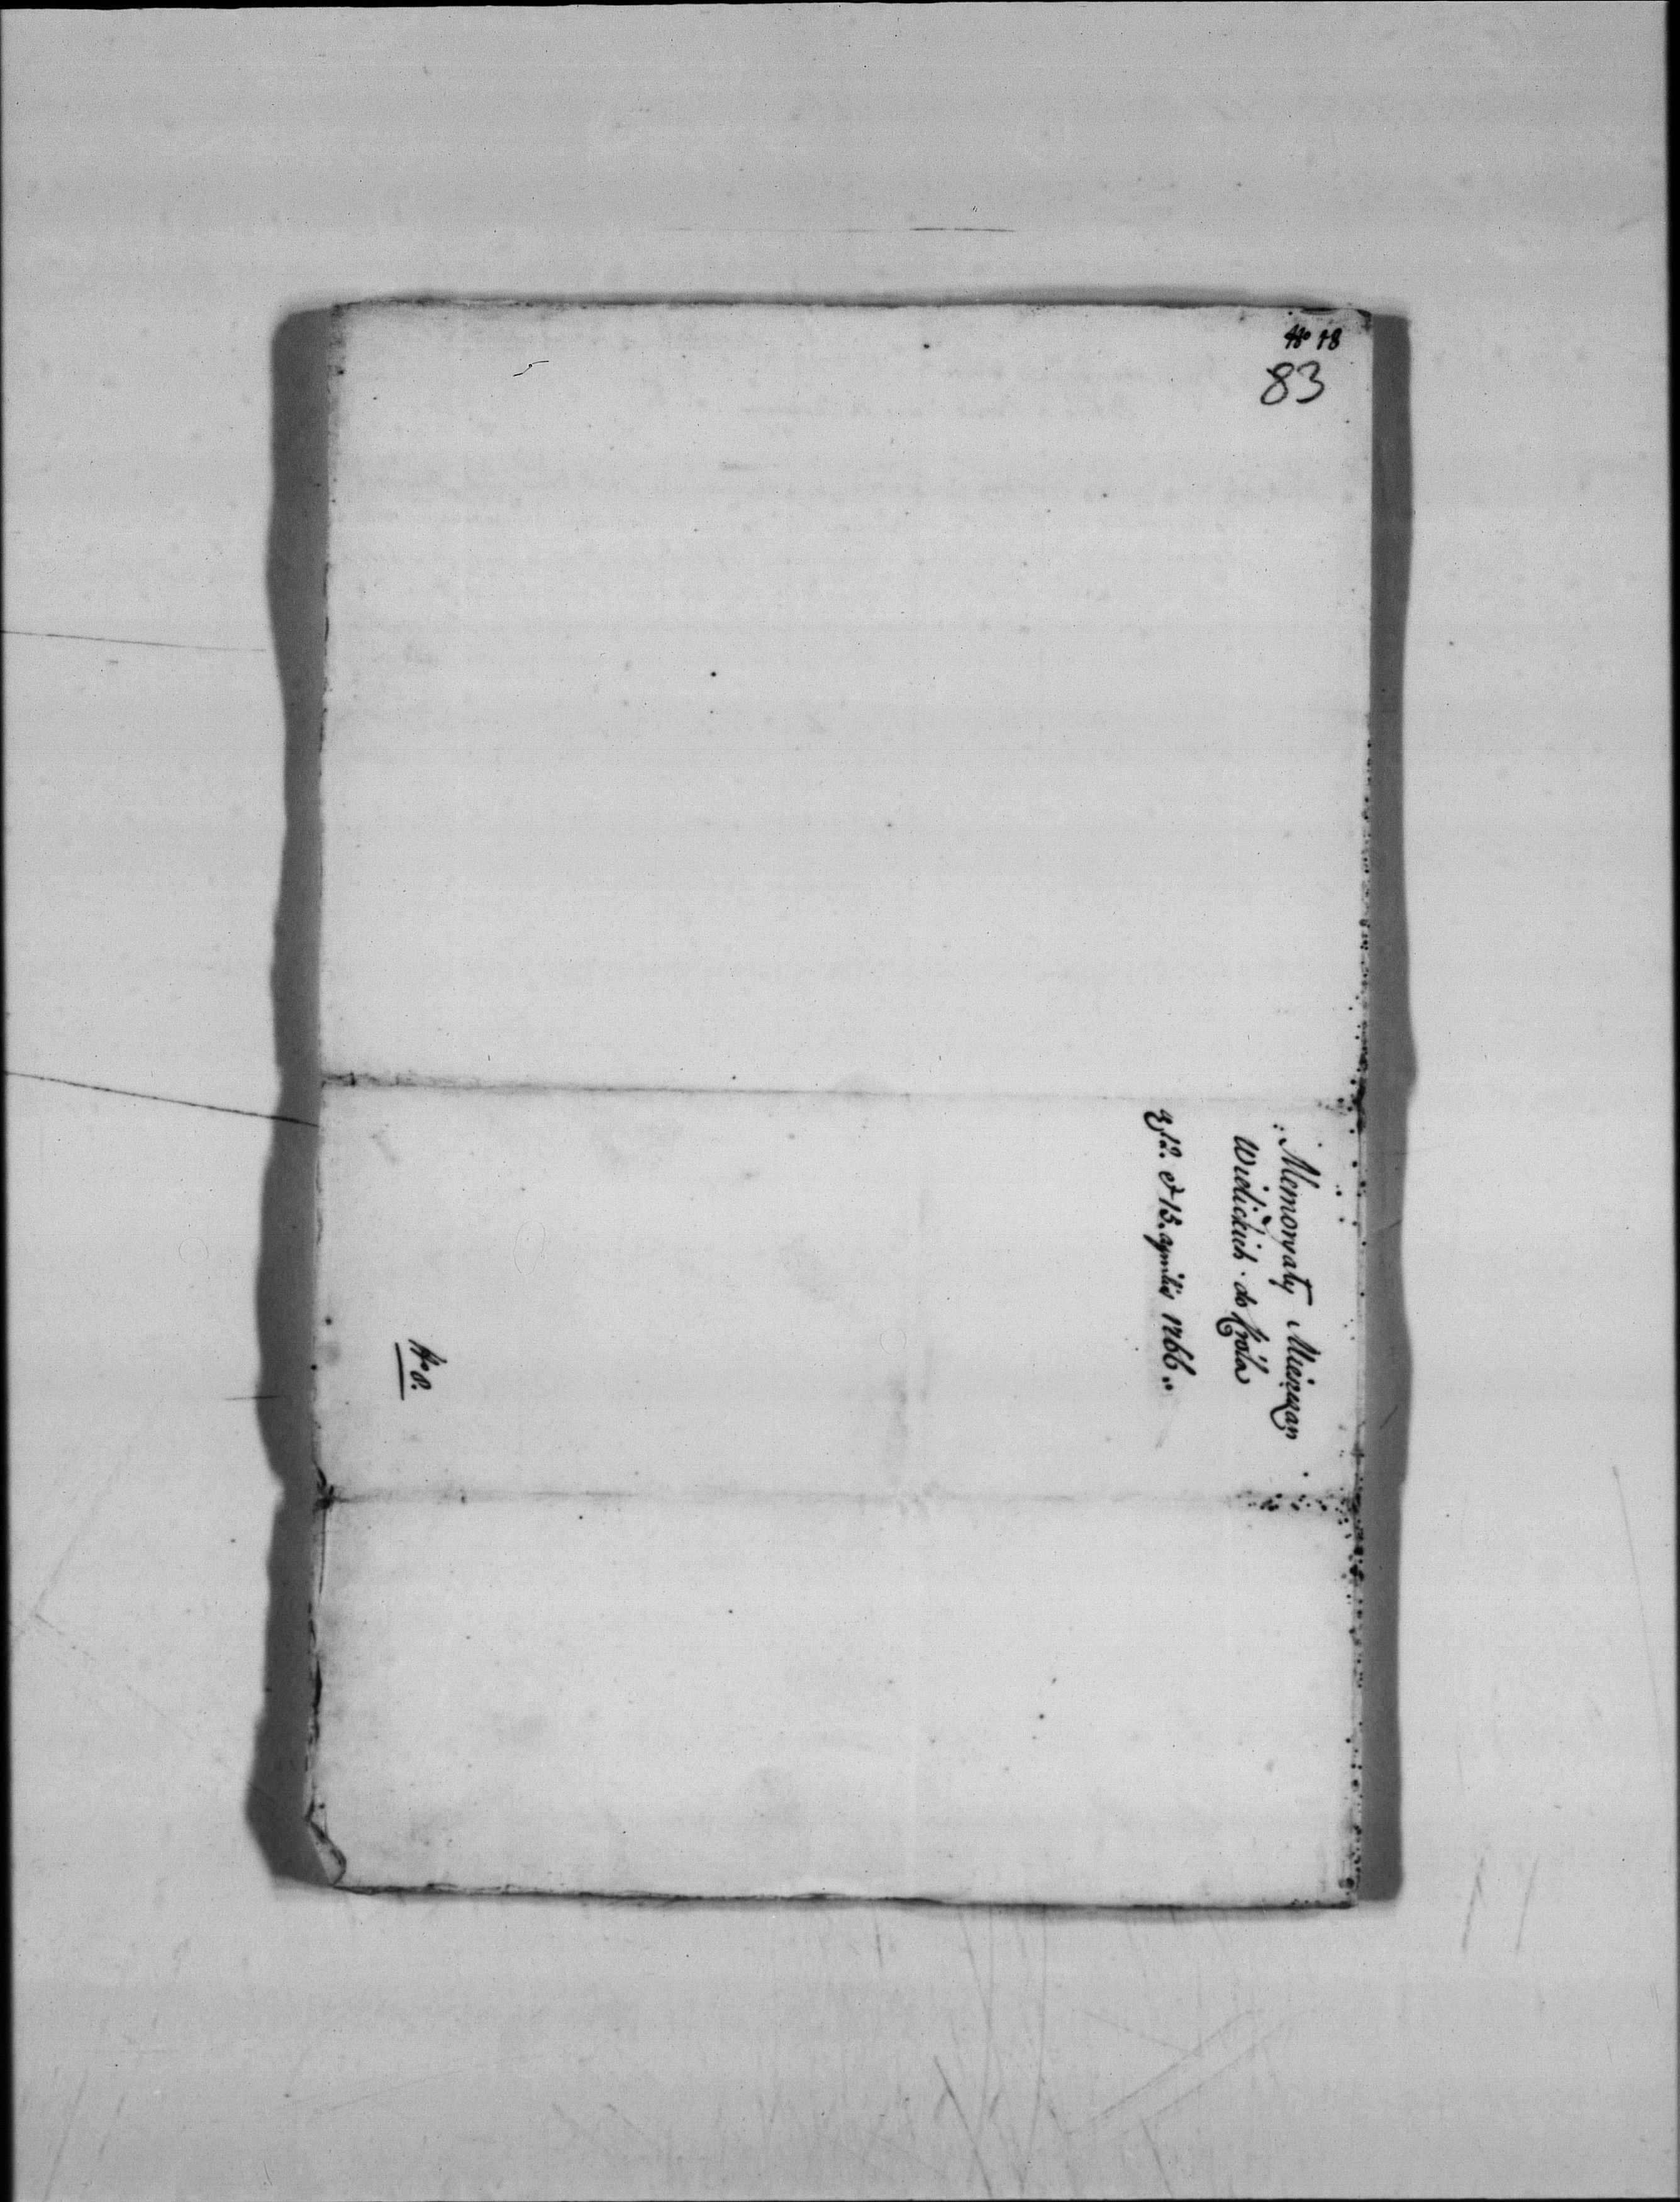 No 18
83
Memoryały Mieszczan
Wielickich do Króla
12. et 15. aprilis 1766.
No 8.